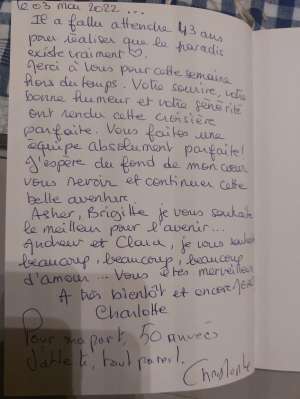 Le 03 mai 2022 ...
Il a fallu attendre 43 ans
pour réaliser que le paradis
existe vraiment
Merci à vous pour cette semaine
hors du temps. Votre sourire, votre
bonne humeur et votre
ont rendu cette croisière
parfaite. Vous faites une
équipe absolument parfaite!
J'espère du fond de mon cœur
vous revoir et continuer cette
belle aventure
Asher, Brigitte je vous souhaite
le meilleur pour l'avenir...
et Clara, je vous souhaite
beaucoup, beaucoup, beaucoup
d'amour... Vous êtes merveilleux
A très bientôt et encore
Charlotte
Pour ma part, 50 années
tout pareil.